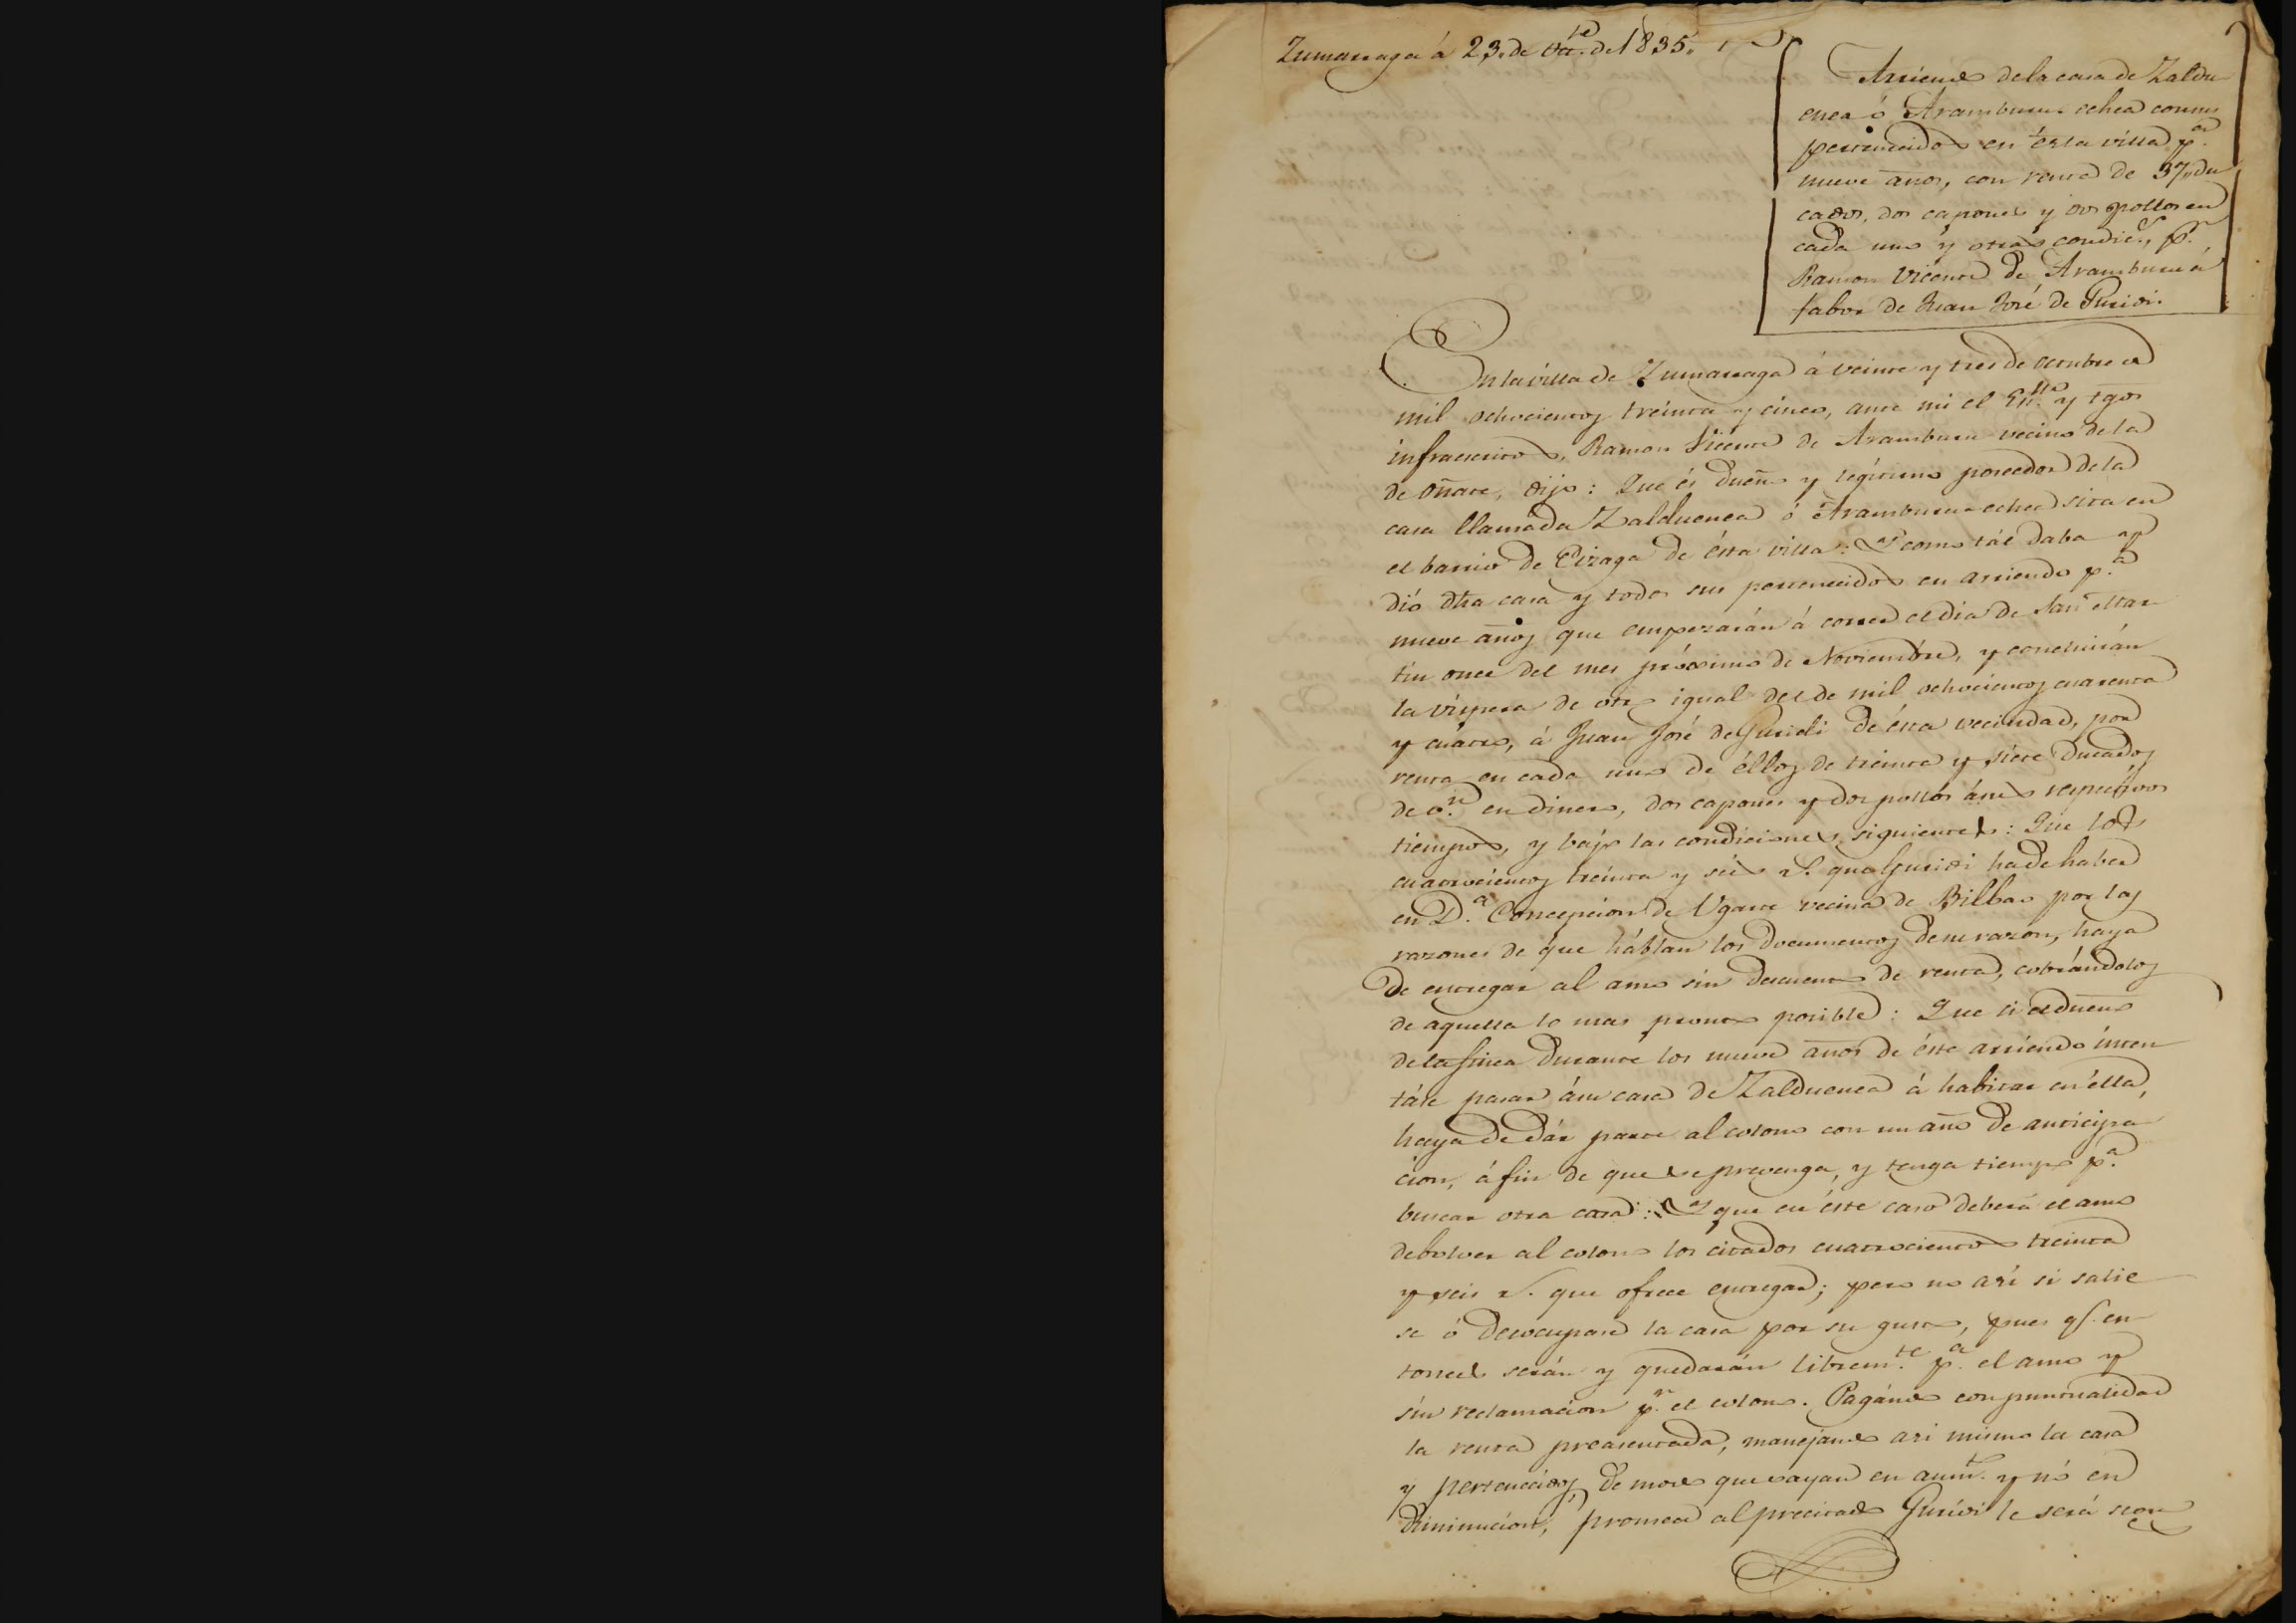 Zumarraga á 23. de Oct.re de 1835.
Arriendo de la casa de Zaldu
enea ó Aramburu-echea con sus
pertenecidos en ésta villa p.a
nueve años, con renta de 37,, du
cados, dos capones y dos pollos en
cada uno y otras condic.s, p.r
Ramon Vicente de Aramburu á
fabor de Juan José de Guridi.
En la villa de Zumarraga á veinte y tres de octubre de
mil ochocientos treinta y cinco, ante mi el Es.no y tgos
infraescritos, Ramon Vicente de Aramburu vecino de la
de Oñate, dijo: Que és dueño y legítimo poseedor de la
casa llamada Zalduenea ó Aramburu-echea sita en
el barrio de Eizaga de ésta villa: Y como tál daba y
dió dha casa y todos sus pertenecidos en arriendo p.a
nueve años que empezarán á correr el dia de San Mar
tin once del mes próximo de Noviembre, y concluirán
la víspera de otro igual del de mil ochocientos cuarenta
y cuatro, á Juan José de Guridi de ésta vecindad, por
renta en cada uno de éllos de treinta y siete ducados
de v.n en dinero, dos capones y dos pollos á sus respectivos
tiempos, y bajo las condiciones siguientes: Que los
cuatrocientos treinta y seis r.s que Guridi ha de haber
en D.a Concepcion de Ugarte vecina de Bilbao por las
razones de que háblan los documentos de su razon, haya
de entregar al amo sin descuento de renta, cobrándolos
de aquella lo mas pronto posible: Que si el dueño
de la finca durante los nueve años de éste arriendo inten
táse pasar á su casa de Zalduenea á habitar en élla,
haya de dár parte al colono con un año de anticipa
cion, á fin de que se prevenga, y tenga tiempo p.a
buscar otra casa: Y que en éste caso deberá el amo
debolver al colono los citados cuatrocientos treinta
y seis r.s que ofrece entregar; pero no así si salie
se ó desocupase la casa por su gusto, pues q.e en
tonces serán y quedarán librem.te p.a el amo y
sin reclamacion p.r el colono. Pagando con puntualidad
la renta preasentada, manejando asi mismo la casa
y pertenecidos, de modo que vayan en aum.to y nó en
diminucion, promete al precitado Guridi le será